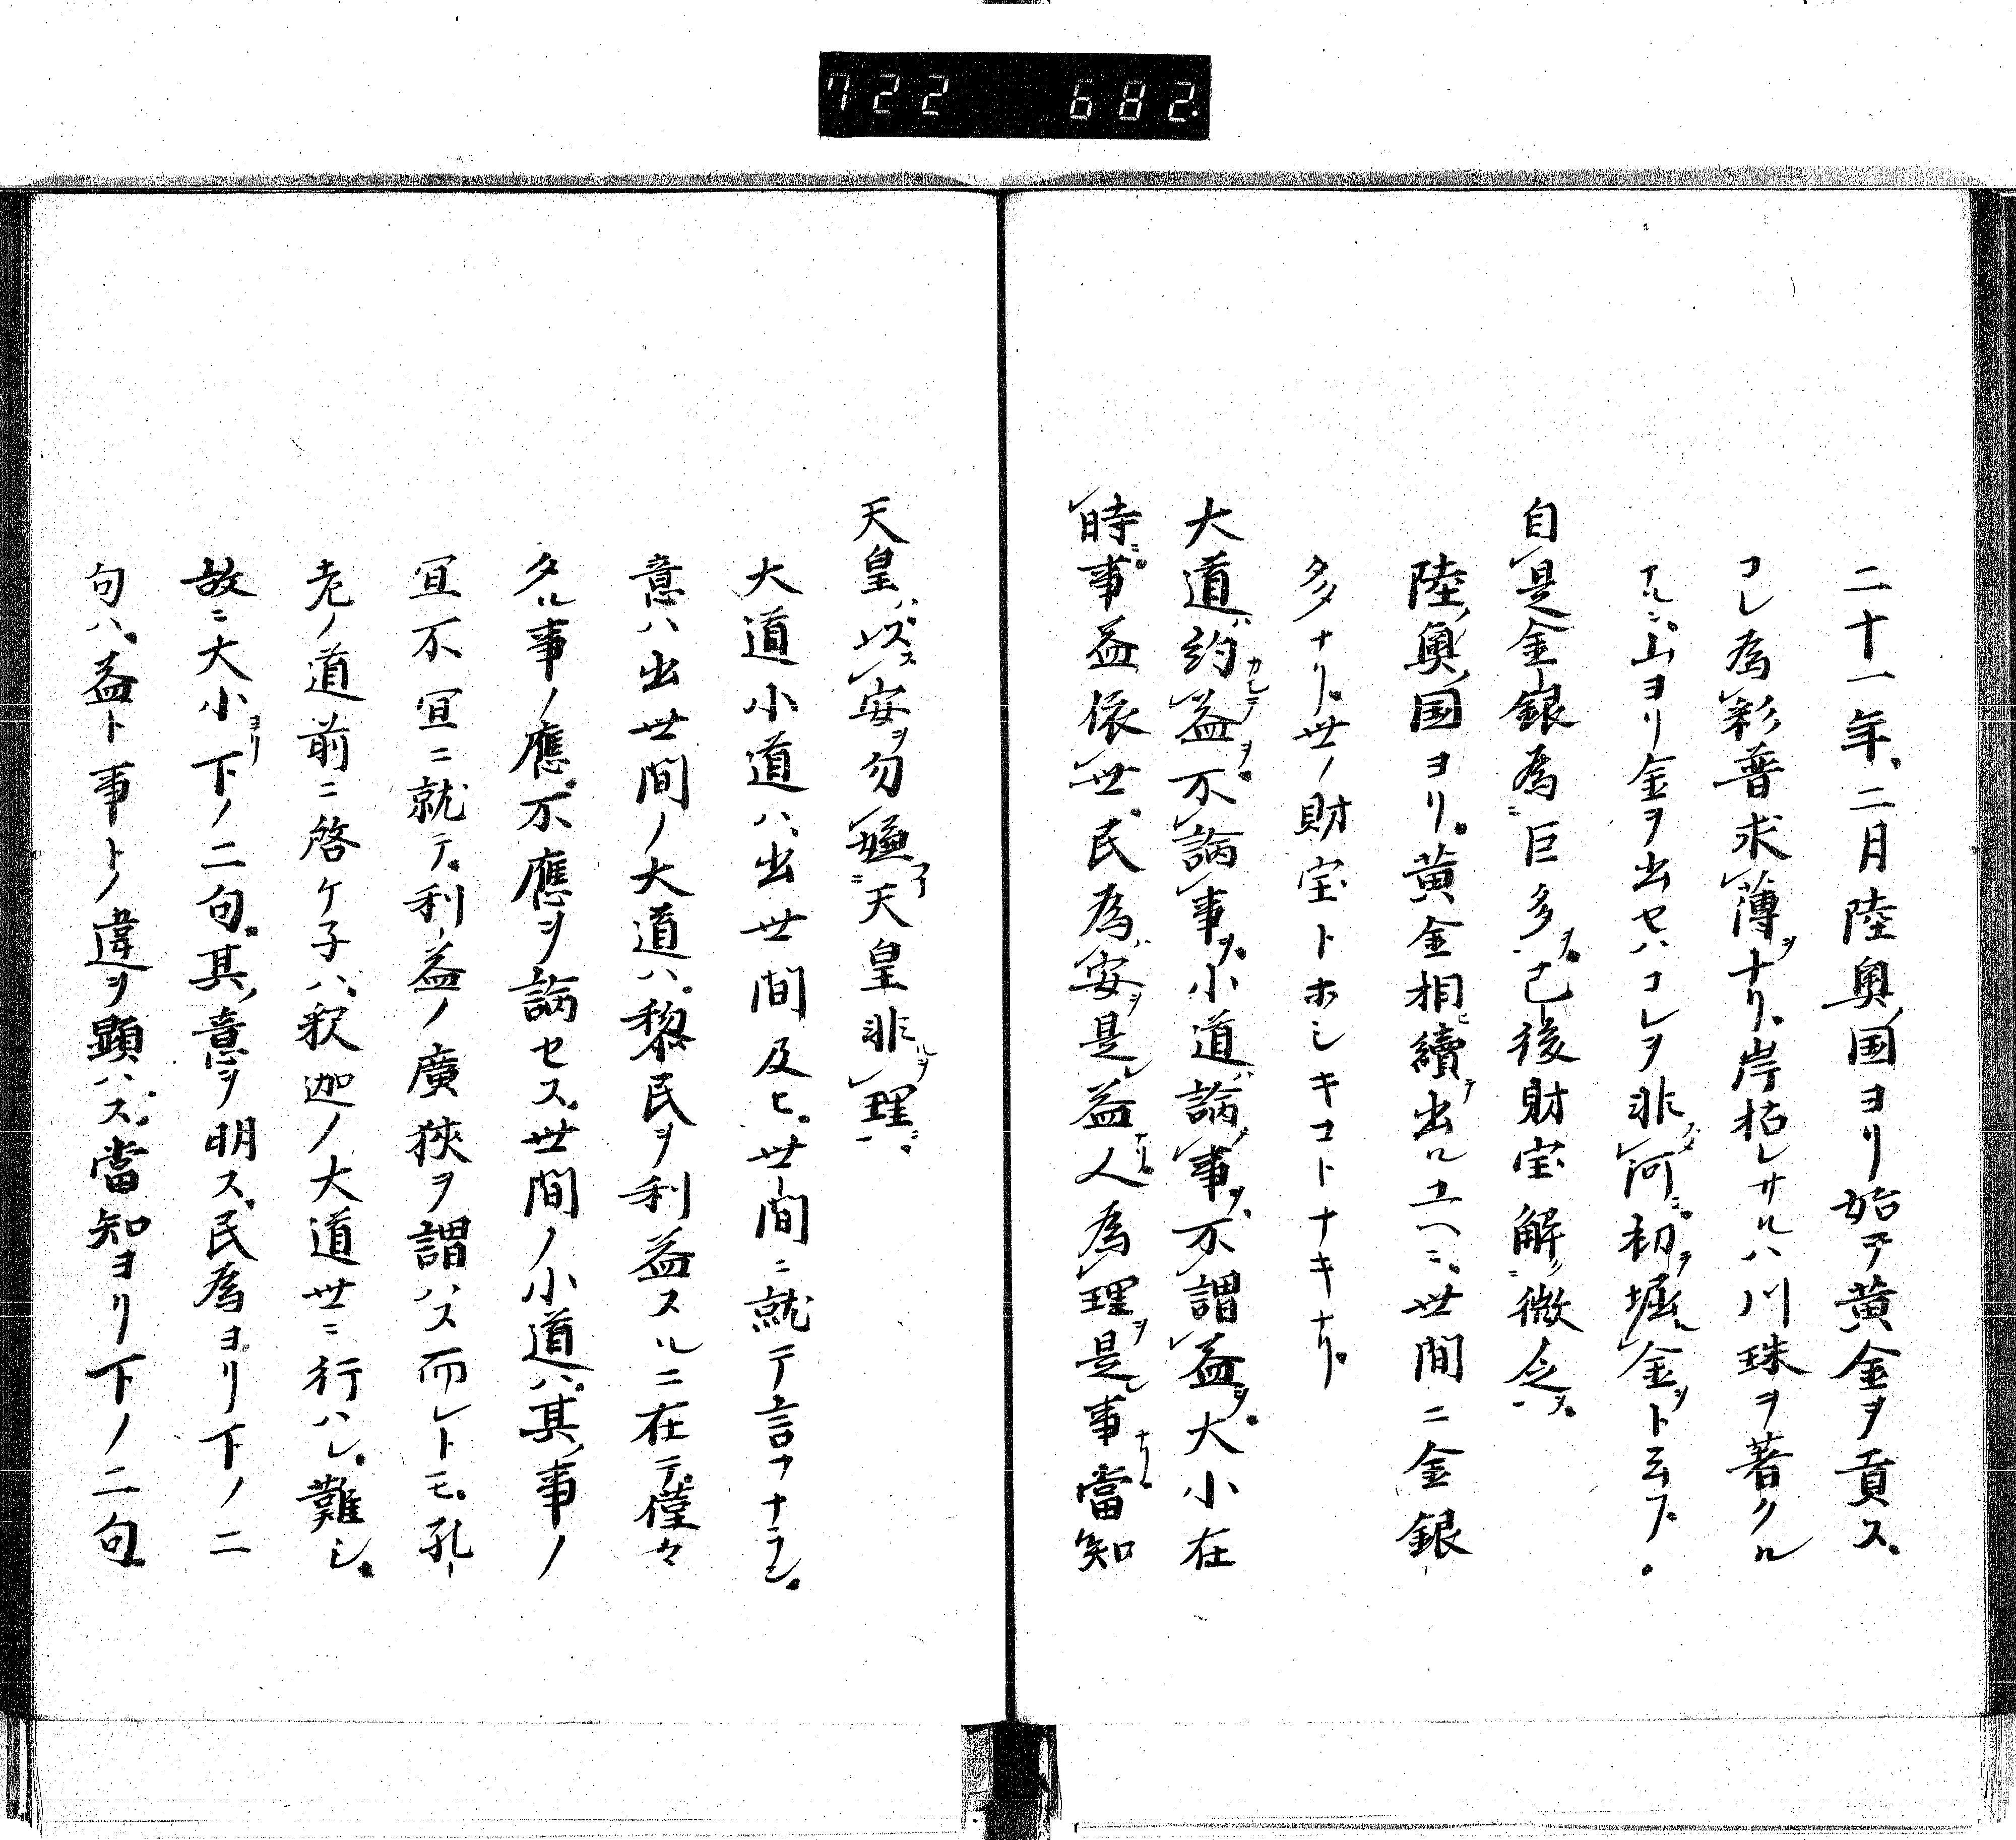 722 682.
二十一年。二月陸奥国ヨリ始テ黄金ヲ貢ス。
コレ為彩普求薄ヲナリ。岸枯レサルハ川珠ヲ著クル
アルニ。山ヨリ金ヲ出セハコレヲ非河ニ。初ヲ堀金ヲト云フ。
自是金銀為ニ巨多ヲ。已後財宝解ニ微乏ヲ。
陸奥国ヨリ。黄金相ヒ續テ出ルユヘニ。世間ニ金銀
多タナリ。世ノ財宝トホシキコトナキナリ。
大道ハ約益ヲ。不論事ヲ。小道ハ論事ヲ。不謂益ヲ。大小在
時ニ。事益依世。民為ハ安ヲ是レ益ナリ。人為理ヲ是レ事ナリ。當知
天皇ハ以スス安ヲ勿嬾ニ天皇非ルヲ理ニ。
大道小道ハ、出世間及ヒ。世間ニ就テ言フナラシ。
意ハ出世間ノ大道ハ。黎民ヲ利益スルニ在テ。僅々
タル事ノ應。不應ヲ論セス。世間ノ小道ハ。其事ノ
宜不宜ニ就テ。利益ノ廣狹ヲ謂ハス而レトモ。孔
老ノ道前ニ啓ケ子ハ。釈迦ノ大道世ニ行ハレ。難シ。
故ニ大小ヨリ下ノ二句。其意ヲ明ス。民為ヨリ下ノ二
句ハ。益ト事トノ違ヲ顕ハス。當知ヨリ下ノ二句